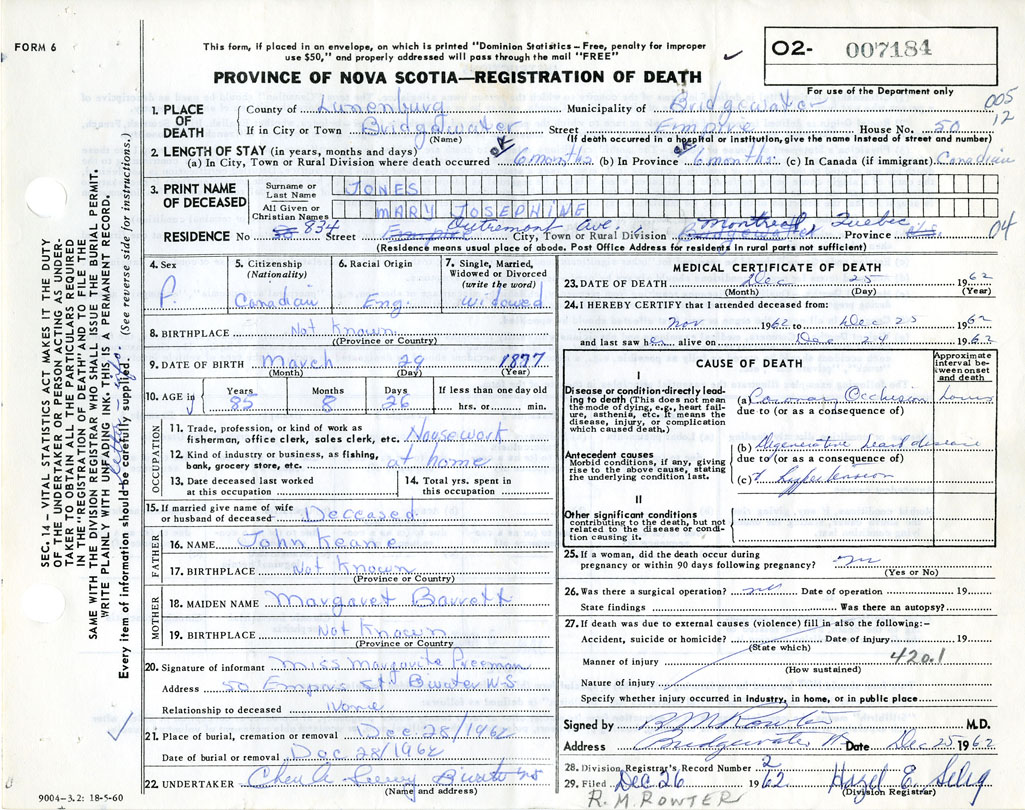 FORM 6
This form, if placed in an envelope, on which is printed "Dominion Statistics – Free, penalty for improper
use $50," and properly addressed will pass through the mail "FREE"
02- 007184
PROVINCE OF NOVA SCOTIA—REGISTRATION OF DEATH
For use of the Department only
005
12
1. PLACE OF DEATH
County of Lunenburg Municipality of Bridgewater
If in City or Town Bridgewater Street Empire House No. 50
(Name) (If death occurred in a hospital or institution, give the name instead of street and number)
2. LENGTH OF STAY (in years, months and days)
OK OK
(a) In City, Town or Rural Division where death occurred 6 months (b) In Province 6 months (c) In Canada (if immigrant) Canadian
3. PRINT NAME OF DECEASED
Surname or Last Name JONES
All Given or Christian Names MARY JOSEPHINE
RESIDENCE No 50 834 Street Empire Outremont Ave. City, Town or Rural Division Bridgewater Montreal Province N.S. Quebec
04
(Residence means usual place of abode. Post Office Address for residents in rural parts not sufficient)
4. Sex F.
5. Citizenship (Nationality) Canadian
6. Racial Origin Eng.
7. Single, Married, Widowed or Divorced (write the word) Widowed
8. BIRTHPLACE Not Known
(Province or Country)
9. DATE OF BIRTH March 29 1877
(Month) (Day) (Year)
10. AGE in Years 85 Months 8 Days 26 If less than one day old
hrs. or min.
OCCUPATION
11. Trade, profession, or kind of work as
fisherman, office clerk, sales clerk, etc. Housework
12. Kind of industry or business, as fishing,
bank, grocery store, etc. at home
13. Date deceased last worked
at this occupation
14. Total yrs. spent in
this occupation
15. If married give name of wife
or husband of deceased Deceased
FATHER
16. NAME John Keane
17. BIRTHPLACE Not Known
(Province or Country)
MOTHER
18. MAIDEN NAME Margaret Barrett
19. BIRTHPLACE Not Known
(Province or Country)
20. Signature of informant Miss Margarite Freeman
Address 50 Empire St B'water N.S
Relationship to deceased None
21. Place of burial, cremation or removal Dec. 28/1962
Date of burial or removal Dec 28/1962
22. UNDERTAKER
(Name and address)
MEDICAL CERTIFICATE OF DEATH
23. DATE OF DEATH Dec 25 1962
(Month) (Day) (Year)
24. I HEREBY CERTIFY that I attended deceased from:
Nov 1962 to Dec 25 1962
and last saw her alive on Dec 24 1962
CAUSE OF DEATH
Approximate interval between onset and death
I
Disease or condition directly leading
to death (This does not mean
the mode of dying, e.g., heart failure,
asthenia, etc. It means the
disease, injury, or complication
which caused death.)
(a) Coronary Occlusion hours
due to (or as a consequence of)
Antecedent causes
Morbid conditions, if any, giving
rise to the above cause, stating
the underlying condition last.
(b) Degenerative heart disease
due to (or as a consequence of)
(c) & Hypertension
II
Other significant conditions
contributing to the death, but not
related to the disease or condition
causing it.
25. If a woman, did the death occur during
pregnancy or within 90 days following pregnancy? no
(Yes or No)
26. Was there a surgical operation? no Date of operation 19
State findings Was there an autopsy?
27. If death was due to external causes (violence) fill in also the following:–
Accident, suicide or homicide? Date of injury 19
(State which)
Manner of injury 420.1
(How sustained)
Nature of injury
Specify whether injury occurred in industry, in home, or in public place
Signed by M.D.
Address Bridgewater Date Dec 25 1962
28. Division Registrar's Record Number 2
29. Filed Dec 26 1962 Hazel E. Selig
(Division Registrar)
R. M. ROWTER
9004–3.2: 18-5-60
SEC. 14 – VITAL STATISTICS ACT MAKES IT THE DUTY
OF THE UNDERTAKER OR PERSON ACTING AS UNDERTAKER
TO OBTAIN ALL THE PARTICULARS REQUIRED
IN THE "REGISTRATION OF DEATH" AND TO FILE THE
SAME WITH THE DIVISION REGISTRAR WHO SHALL ISSUE THE BURIAL PERMIT.
WRITE PLAINLY WITH UNFADING INK. THIS IS A PERMANENT RECORD.
Every item of information should be carefully supplied. (See reverse side for instructions.)